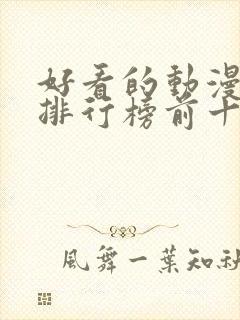 好看的動漫
排行榜前十
風舞一葉知秋